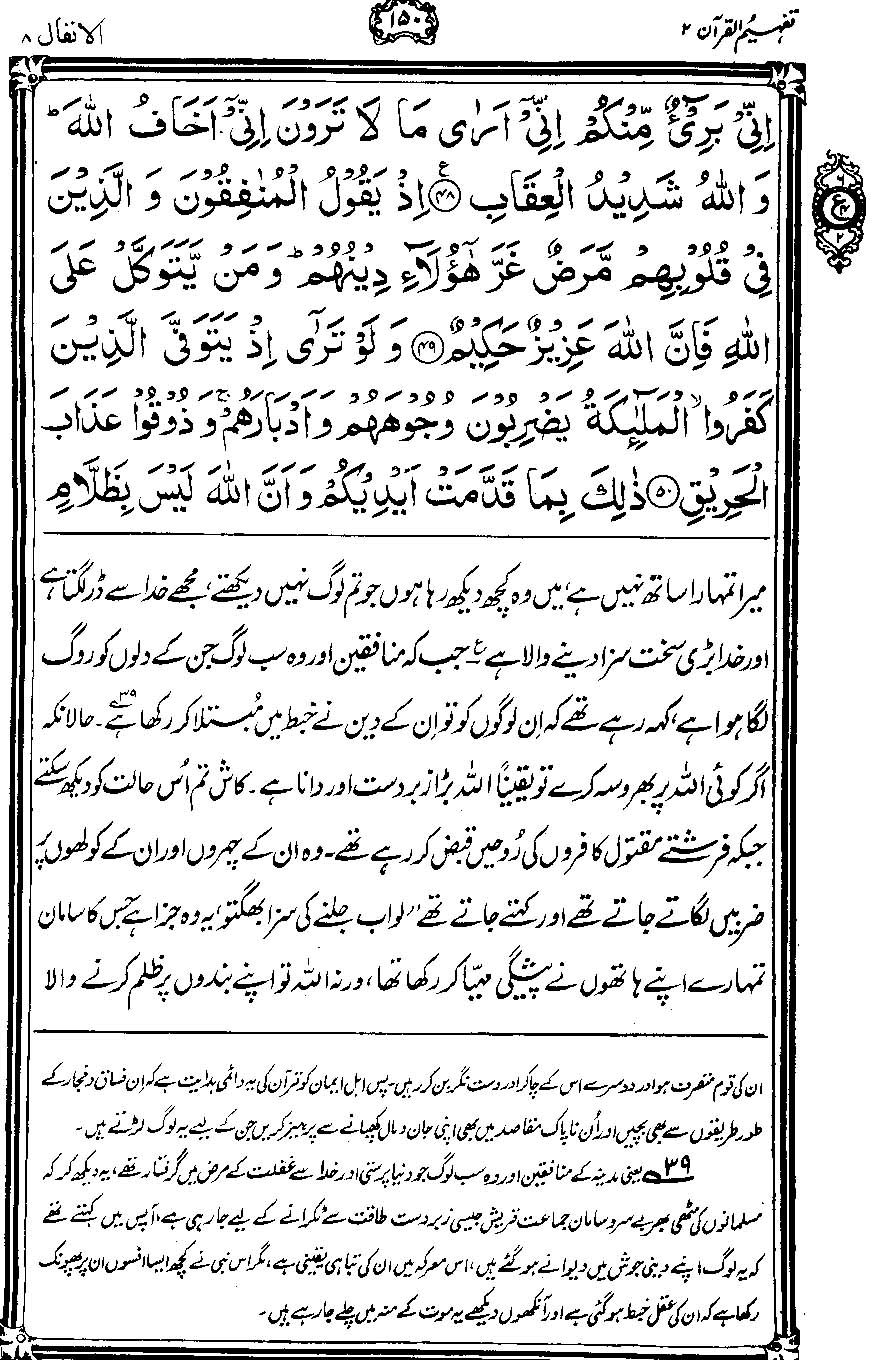 تفہیم القرآن ۲
۱۵۰
الانفال ۸
اِنِّیْ بَرِیْٓءٌ مِّنْكُمْ اِنِّیْۤ اَرٰی مَا لَا تَرَوْنَ اِنِّیْۤ اَخَافُ اللّٰهَ ؕ
وَ اللّٰهُ شَدِیْدُ الْعِقَابِ ﴿۴۸﴾ ع اِذْ یَقُوْلُ الْمُنٰفِقُوْنَ وَ الَّذِیْنَ
فِیْ قُلُوْبِهِمْ مَّرَضٌ غَرَّ هٰۤؤُلَآءِ دِیْنُهُمْ ؕ وَ مَنْ یَّتَوَكَّلْ عَلَی
اللّٰهِ فَاِنَّ اللّٰهَ عَزِیْزٌ حَكِیْمٌ ﴿۴۹﴾ وَ لَوْ تَرٰۤی اِذْ یَتَوَفَّی الَّذِیْنَ
كَفَرُوا ۙ الْمَلٰٓئِكَةُ یَضْرِبُوْنَ وُجُوْهَهُمْ وَ اَدْبَارَهُمْ ۚ وَ ذُوْقُوْا عَذَابَ
الْحَرِیْقِ ﴿۵۰﴾ ذٰلِكَ بِمَا قَدَّمَتْ اَیْدِیْكُمْ وَ اَنَّ اللّٰهَ لَیْسَ بِظَلَّامٍ
۶
ع
۴
۲
میرا تمہارا ساتھ نہیں ہے، میں وہ کچھ دیکھ رہا ہوں جو تم لوگ نہیں دیکھتے، مجھے خدا سے ڈر لگتا ہے
اور خدا بڑی سخت سزا دینے والا ہے ع جب کہ منافقین اور وہ سب لوگ جن کے دلوں کو روگ
لگا ہوا ہے، کہہ رہے تھے کہ اِن لوگوں کو تو اِن کے دین نے خبط میں مُبتلا کر رکھا ہے۳۹۔ حالانکہ
اگر کوئی اللہ پر بھروسہ کرے تو یقیناً اللہ بڑا زبردست اور دانا ہے۔ کاش تم اُس حالت کو دیکھ سکتے
جبکہ فرشتے مقتول کافروں کی رُوحیں قبض کر رہے تھے۔ وہ ان کے چہروں اور ان کے کولھوں پر
ضربیں لگاتے جاتے تھے اور کہتے جاتے تھے ”لو اب جلنے کی سزا بھگتو، یہ وہ جزا ہے جس کا سامان
تمہارے اپنے ہاتھوں نے پیشگی مہیّا کر رکھا تھا، ورنہ اللہ تو اپنے بندوں پر ظلم کرنے والا
ان کی قوم متصرف ہو اور دوسرے اس کے چاکر اور دست نگر بن کر رہیں۔ پس اہل ایمان کو قرآن کی یہ دائمی ہدایت ہے کہ ان فساق و فجار کے
طور طریقوں سے بھی بچیں اور اُن ناپاک مقاصد میں بھی اپنی جان و مال کھپانے سے پرہیز کریں جن کے لیے یہ لوگ لڑتے ہیں۔
۳۹ یعنی مدینہ کے منافقین اور وہ سب لوگ جو دنیا پرستی اور خدا سے غفلت کے مرض میں گرفتار تھے، یہ دیکھ کر کہ
مسلمانوں کی مٹھی بھر بے سرو سامان جماعت قریش جیسی زبردست طاقت سے ٹکرانے کے لیے جا رہی ہے، آپس میں کہتے تھے
کہ یہ لوگ اپنے دینی جوش میں دیوانے ہو گئے ہیں، اس معرکہ میں ان کی تباہی یقینی ہے، مگر اس نبی نے کچھ ایسا افسوں ان پر پھونک
رکھا ہے کہ ان کی عقل خبط ہو گئی ہے اور آنکھوں دیکھے یہ موت کے منہ میں چلے جا رہے ہیں۔